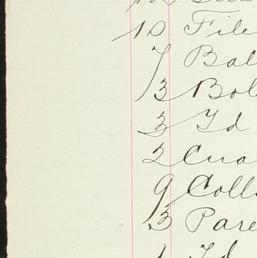 10 File
7 Bal
3 Bol
3 Yd
2 Cua
9 Coll
3 Pare
1 Yd